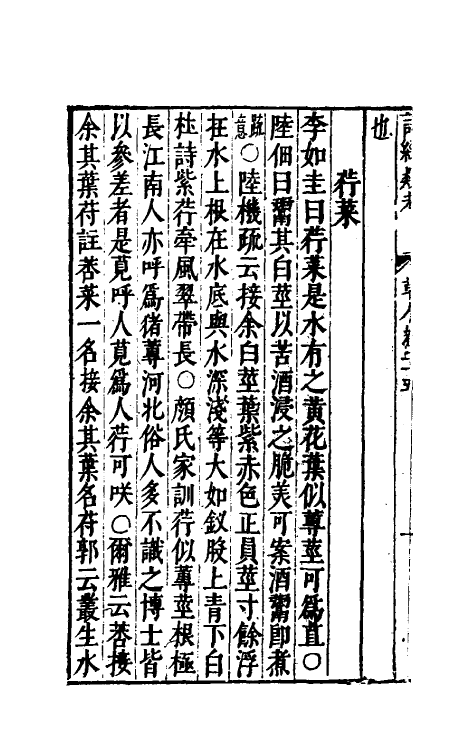 也
荇菜
李如圭曰荇菜是水有之黃花葉似蓴莖可為直〇
陸佃曰鬻其白莖以苦酒浸之脆美可案酒鬻即煮
意〇陸機疏云接余白莖葉紫赤色正員莖寸餘浮
在水上根在水底與水深淺等大如釵股上青下白
杜詩紫荇牽風翠帶長〇顏氏家訓荇似蓴莖根極
長江南人亦呼為猪蓴河北俗人多不識之博士皆
以參差者是莧呼人莧為人荇可咲〇爾雅云莕接
余其葉苻註莕菜一名接余其葉名苻郭云叢生水